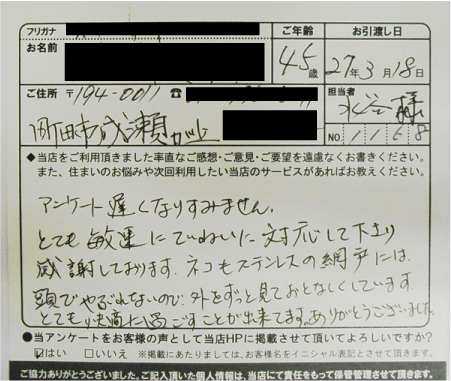 フリガナ ご年齢 お引渡し日
お名前 45歳 27年3月18日
ご住所 〒194-0011 ☎ 担当者
町田市成瀬が丘 様
NO. 1168
◆当店をご利用頂きました率直なご感想・ご意見・ご要望を遠慮なくお書きください。
また、住まいのお悩みや次回利用したい当店のサービスがあればお教えください。
アンケート遅くなりすみません。
とても敏速にていねいに対応して下さり
感謝しております。ネコもステンレスの網戸には、
頭でやぶれないので、外をずっと見ておとなしくしています。
とても快適に過ごすことが出来てます。ありがとうございました。
●当アンケートをお客様の声として当店HPに掲載させて頂いてよろしいですか?
☑はい □いいえ ※掲載にあたりましては、お客様名をイニシャル表記とさせて頂きます。
ご協力ありがとうございました。ご記入頂いた個人情報は、当店にて責任をもって保管管理させて頂きます。